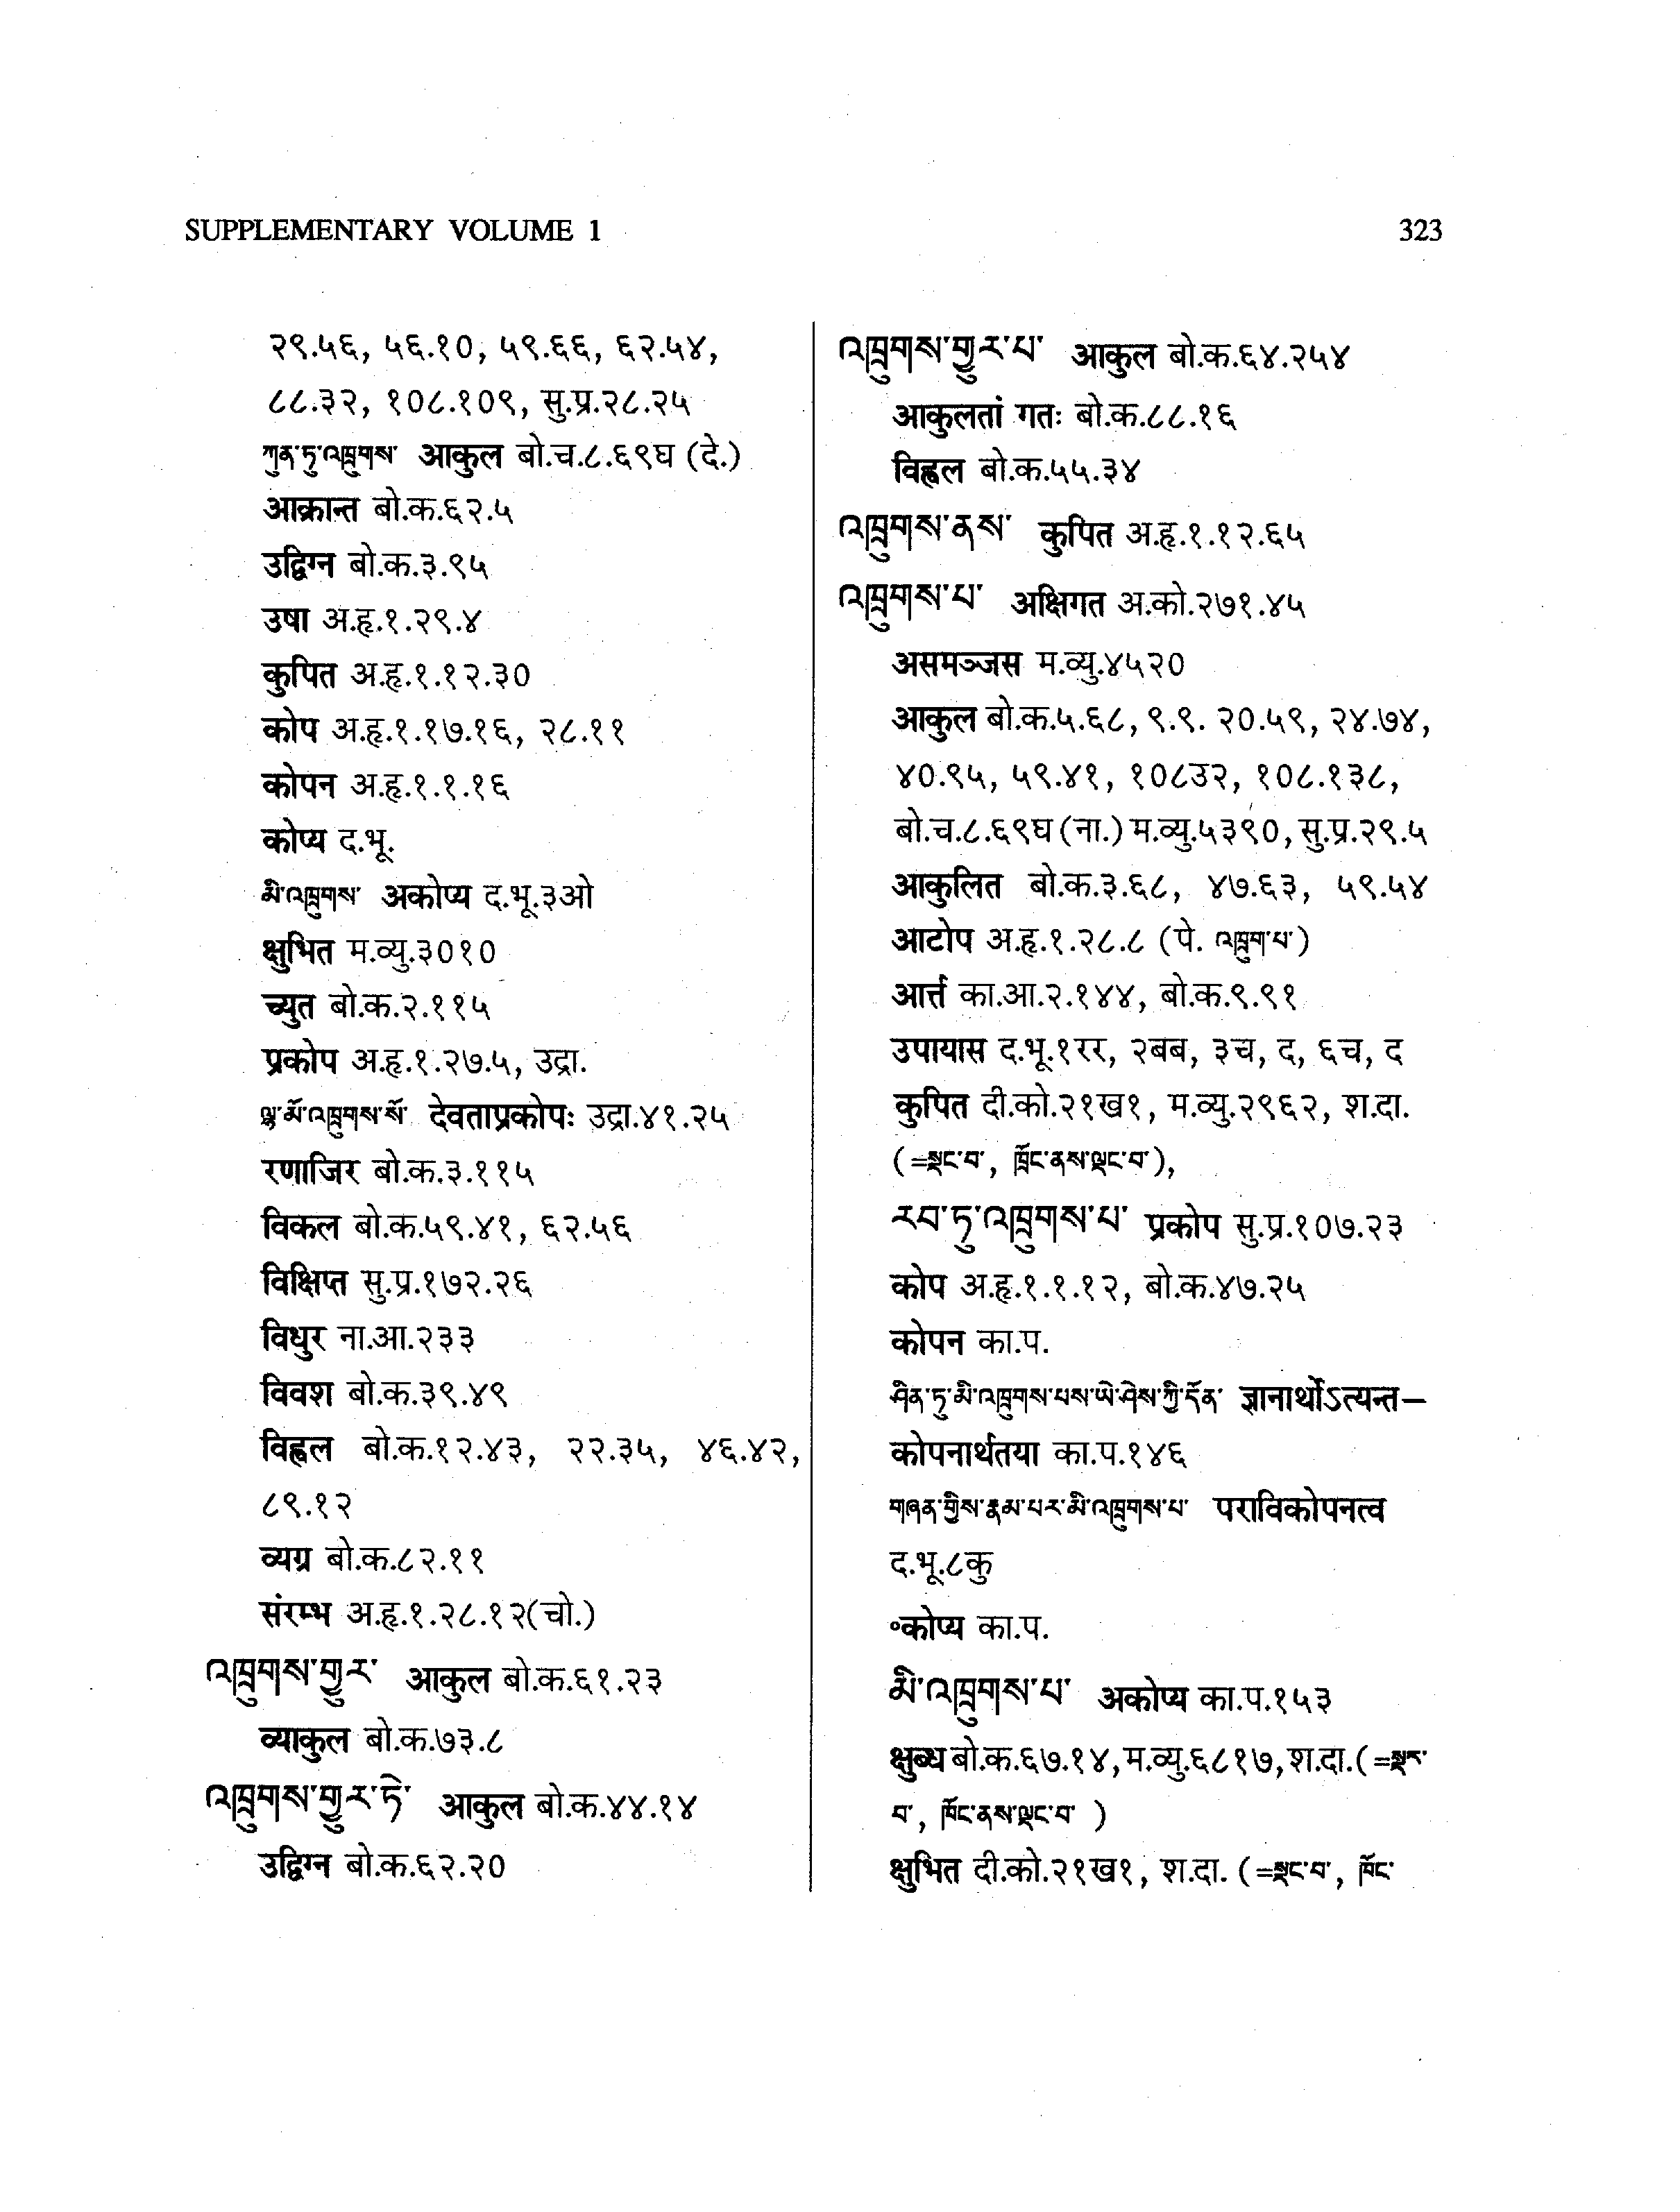 SUPPLEMENTARY VOLUME 1 323
२९.५६, ५६.१०, ५९.६६, ६२.५४,
८८.३२, १०८.१०९, सु.प्र.२८.२५
ཀུན་ཏུ་འཁྲུགས་ आकुल बो.च.८.६९घ (दे.)
आक्रान्त बो.क.६२.५
उद्विग्न बो.क.३.९५
उषा अ.हृ.१.२९.४
कुपित अ.हृ.१.१२.३०
कोप अ.हृ.१.१७.१६, २८.११
कोपन अ.हृ.१.१.१६
कोप्य द.भू.
མི་འཁྲུགས་ अकोप्य द.भू.३ओ
क्षुभित म.व्यु.३०१०
च्युत बो.क.२.११५
प्रकोप अ.हृ.१.२७.५, उद्रा.
ལྷ་མོ་འཁྲུགས་སོ་ देवताप्रकोपः उद्रा.४१.२५
रणाजिर बो.क.३.११५
विकल बो.क.५९.४१, ६२.५६
विक्षिप्त सु.प्र.१७२.२६
विधुर ना.आ.२३३
विवश बो.क.३९.४९
विह्वल बो.क.१२.४३, २२.३५, ४६.४२,
८९.१२
व्यग्र बो.क.८२.११
संरम्भ अ.हृ.१.२८.१२(चो.)
འཁྲུགས་གྱུར་ आकुल बो.क.६१.२३
व्याकुल बो.क.७३.८
འཁྲུགས་གྱུར་ཏེ་ आकुल बो.क.४४.१४
उद्विग्न बो.क.६२.२०
འཁྲུགས་གྱུར་པ་ आकुल बो.क.६४.२५४
आकुलतां गतः बो.क.८८.१६
विह्वल बो.क.५५.३४
འཁྲུགས་ནས་ कुपित अ.हृ.१.१२.६५
འཁྲུགས་པ་ अक्षिगत अ.को.२७१.४५
असमञ्जस म.व्यु.४५२०
आकुल बो.क.५.६८, ९.९. २०.५९, २४.७४,
४०.९५, ५९.४१, १०८उ२, १०८.१३८,
बो.च.८.६९घ (ना.) म.व्यु.५३९०, सु.प्र.२९.५
आकुलित बो.क.३.६८, ४७.६३, ५९.५४
आटोप अ.हृ.१.२८.८ (पे. འཁྲུག་པ་)
आर्त्त का.आ.२.१४४, बो.क.९.९१
उपायास द.भू.१रर, २बब, ३च, द, ६च, द
कुपित दी.को.२१ख१, म.व्यु.२९६२, श.दा.
(=སྡང་བ་, ཁྲོང་ནས་ལྡང་བ་),
རབ་ཏུ་འཁྲུགས་པ་ प्रकोप सु.प्र.१०७.२३
कोप अ.हृ.१.१.१२, बो.क.४७.२५
कोपन का.प.
ཤིན་ཏུ་མི་འཁྲུགས་པས་ཡེ་ཤེས་ཀྱི་དོན་ ज्ञानार्थोऽत्यन्त–
कोपनार्थतया का.प.१४६
གཞན་གྱིས་རྣམ་པར་མི་འཁྲུགས་པ་ पराविकोपनत्व
द.भू.८कु
॰कोप्य का.प.
མི་འཁྲུགས་པ་ अकोप्य का.प.१५३
क्षुब्ध बो.क.६७.१४, म.व्यु.६८१७, श.दा.(=སྡར་
བ་, ཁོང་ནས་ལྡང་བ་ )
क्षुभित दी.को.२१ख१, श.दा. (=སྡང་བ་, ཁོང་